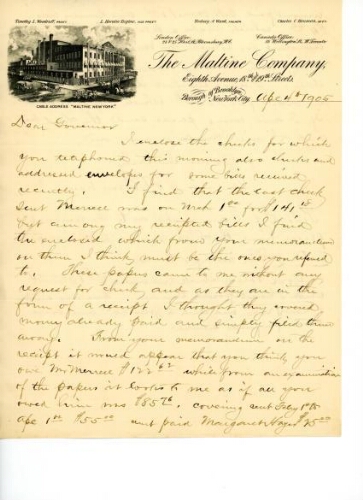 Timothy L. Woodruff, PREST.
London Office:
Canada Office:
The Maltine Company,
Eighth Avenue, 18th & 19th Streets
Borough of Brooklyn
New York City,
CABLE ADDRESS "MALTINE, NEW YORK"
Apl 4th 1905
Dear Governor
I enclose the checks for which
you telephoned this morning also checks and
addressed envelopes for some bills received
recently. I find that the last check
sent Merrell was on Mch 1st for $141
but among my receipted bills I find
the enclosed which from your memorandum
on them I think must be the ones you refered
to. These papers came to me without any
request for check and as they are in the
form of a receipt I thought they covered
money already paid and simply filed them
away. From your memorandum on the
receipt it would appear that you think you
owe Mr Merrell $122 62 while from an examination
of the papers it looks to me as if all you
owed him was $85 76, covering rent Feby 1st to
Apl 1st $55 00 amt paid Margaret $25 00